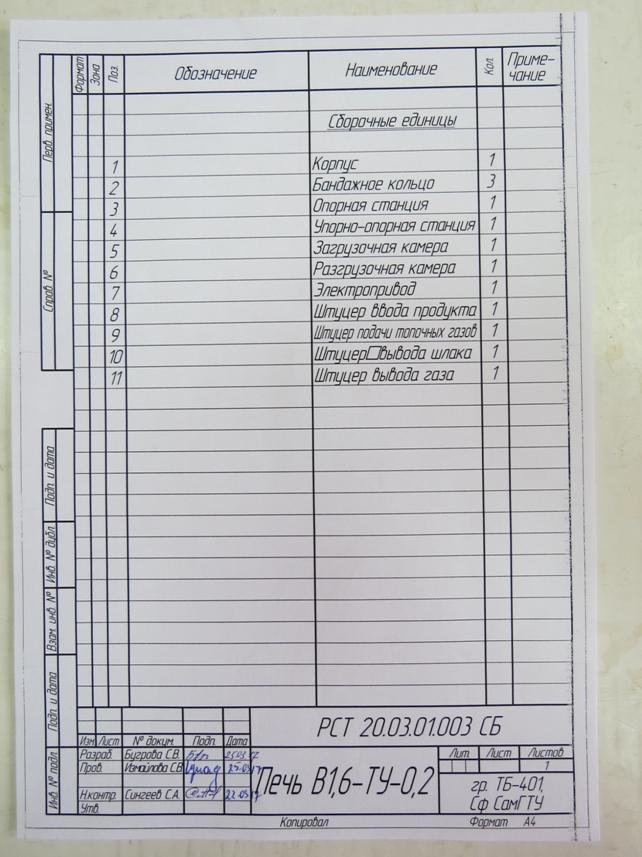 Перв. примен.
Справ. №
Подп. и дата
Инв. № дубл.
Взам. инв. №
Подп. и дата
Инв. № подл.
Формат Зона Поз. Обозначение Наименование Кол. Приме-
чание
Сборочные единицы
1 Корпус 1
2 Бандажное кольцо 3
3 Опорная станция 1
4 Упорно-опорная станция 1
5 Загрузочная камера 1
6 Разгрузочная камера 1
7 Электропривод 1
8 Штуцер ввода продукта 1
9 Штуцер подачи топочных газов 1
10 Штуцер□вывода шлака 1
11 Штуцер вывода газа 1
РСТ 20.03.01.003 СБ
Изм. Лист № докум. Подп. Дата
Разраб. Бугрова С.В.
Пров. Измайлова С.В.
Н.контр. Сингеев С.А.
Утв.
Печь В1,6-ТУ-0,2
Лит. Лист Листов
1
гр. ТБ-401,
Сф СамГТУ
Копировал Формат А4